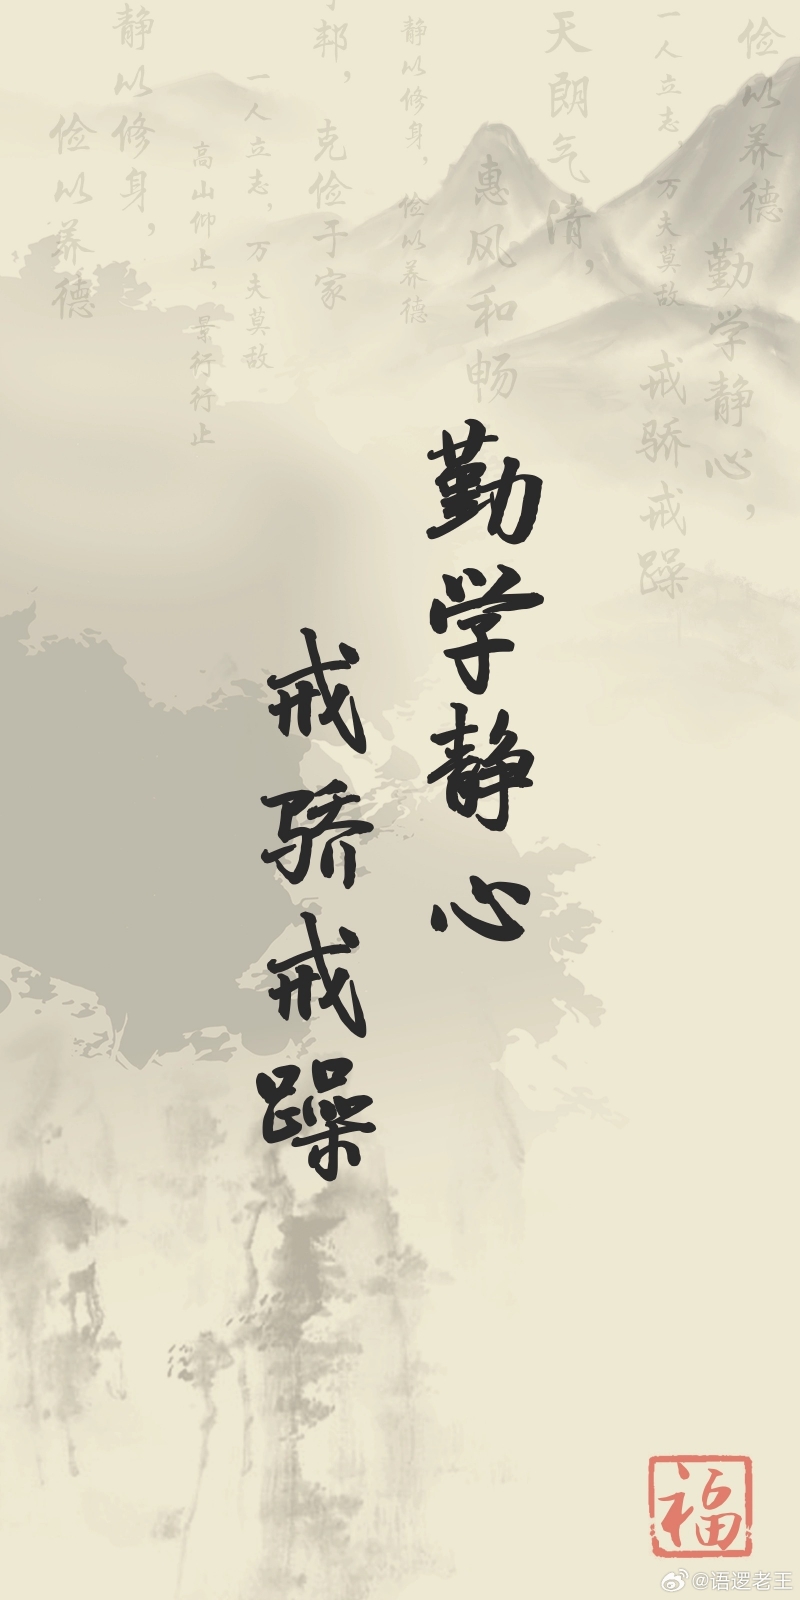 俭以养德
一人立志，万夫莫敌
天朗气清，
惠风和畅
静以修身，
俭以养德
邦，克俭于家
一人立志，万夫莫敌
高山仰止，景行行止
静以修身，
俭以养德
勤学静心，
戒骄戒躁
勤学静心
戒骄戒躁
福
@语逻老王